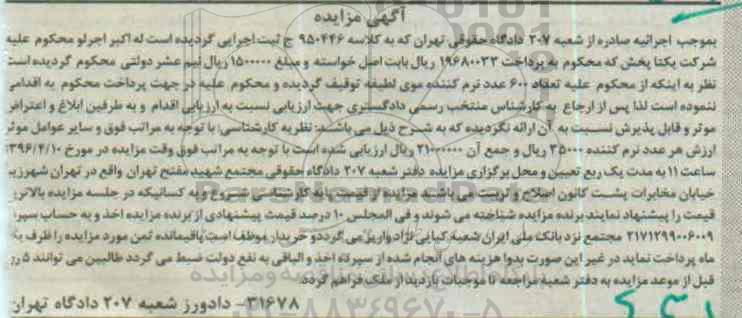 آگهی مزایده
بموجب اجرائیه صادره از شعبه ۲۰۷ دادگاه حقوقی تهران که به کلاسه ۹۵۰۴۴۶ ج ثبت اجرایی گردیده است له اکبر اجرلو محکوم علیه
شرکت یکتا پخش که محکوم به پرداخت ۱۹۶۸۰۰۳۳ ریال بابت اصل خواسته و مبلغ ۱۵۰۰۰۰۰ ریال نیم عشر دولتی محکوم گردیده است
نظر به اینکه از محکوم علیه تعداد ۶۰۰ عدد نرم کننده موی لطیفه توقیف گردیده و محکوم علیه در جهت پرداخت محکوم به اقدامی
ننموده است لذا پس از ارجاع به کارشناس منتخب رسمی دادگستری جهت ارزیابی نسبت به ارزیابی اقدام و به طرفین ابلاغ و اعتراض
موثر و قابل پذیرش نسبت به آن ارائه نگردیده که به شرح ذیل می باشد: نظریه کارشناسی: با توجه به مراتب فوق و سایر عوامل موثر
ارزش هر عدد نرم کننده ۳۵۰۰۰ ریال و جمع آن ۲۱۰۰۰۰۰۰ ریال ارزیابی شده است با توجه به مراتب فوق وقت مزایده در مورخ ۱۳۹۶/۴/۱۰
ساعت ۱۱ به مدت یک ربع تعیین و محل برگزاری مزایده دفتر شعبه ۲۰۷ دادگاه حقوقی مجتمع شهید مفتح تهران واقع در تهران شهرزیبا
خیابان مخابرات پشت کانون اصلاح و تربیت می باشد مزایده از قیمت پایه کارشناسی شروع و به کسانیکه در جلسه مزایده بالاترین
قیمت را پیشنهاد نمایند برنده مزایده شناخته می شوند و فی المجلس ۱۰ درصد قیمت پیشنهادی از برنده مزایده اخذ و به حساب سپرده
۲۱۷۱۲۹۹۰۰۶۰۰۹ مجتمع نزد بانک ملی ایران شعبه کیایی نژاد واریز می گردد و خریدار موظف است باقیمانده ثمن مورد مزایده را ظرف یک
ماه پرداخت نماید در غیر این صورت بدوا هزینه های انجام شده از سپرده اخذ و الباقی به نفع دولت ضبط می گردد طالبین می توانند ۵ روز
قبل از موعد مزایده به دفتر شعبه مراجعه تا موجبات بازدید از ملک فراهم گردد.
۳۱۶۷۸- دادورز شعبه ۲۰۷ دادگاه تهران
ParsNamadData
پایگاه اطلاع رسانی مناقصه و مزایده
۰۲۱-۸۸۳۴۹۶۷۰-۵